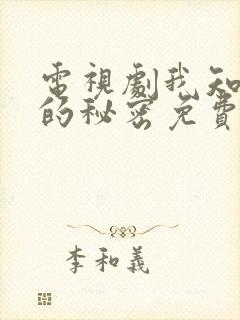 電視劇我知
的秘密免費
李和義